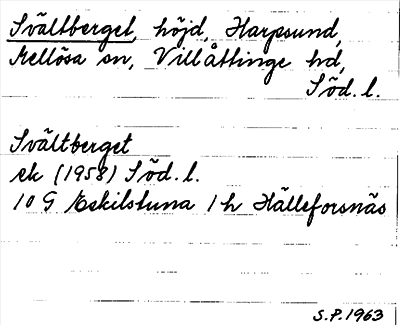 Svältberget, höjd, Harpsund,
Mellösa sn, Villåttinge hd,
Söd. l.
Svältberget
ek (1958) Söd. l.
10 G Eskilstuna 1 h Hälleforsnäs
S.P. 1963